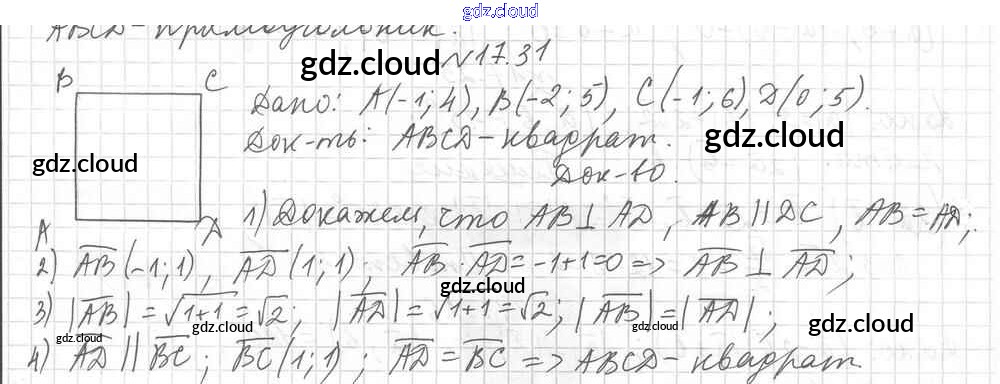 gdz.cloud
ABCD - прямоугольник.
№17.31
gdz.cloud
B C
Дано: A(-1; 4), B(-2; 5), C(-1; 6), D(0; 5).
Док-ть: ABCD - квадрат.
gdz.cloud
gdz.cloud
Док-во.
A D
1) Докажем, что AB ⊥ AD, AB || DC, AB = AD;
2) AB(-1; 1), AD(1; 1); AB · AD = -1+1=0 => AB ⊥ AD;
gdz.cloud
3) |AB| = √1+1 = √2; |AD| = √1+1 = √2; |AB| = |AD|;
gdz.cloud gdz.cloud gdz.cloud
gdz.cloud
4) AD || BC; BC(1; 1); AD = BC => ABCD - квадрат